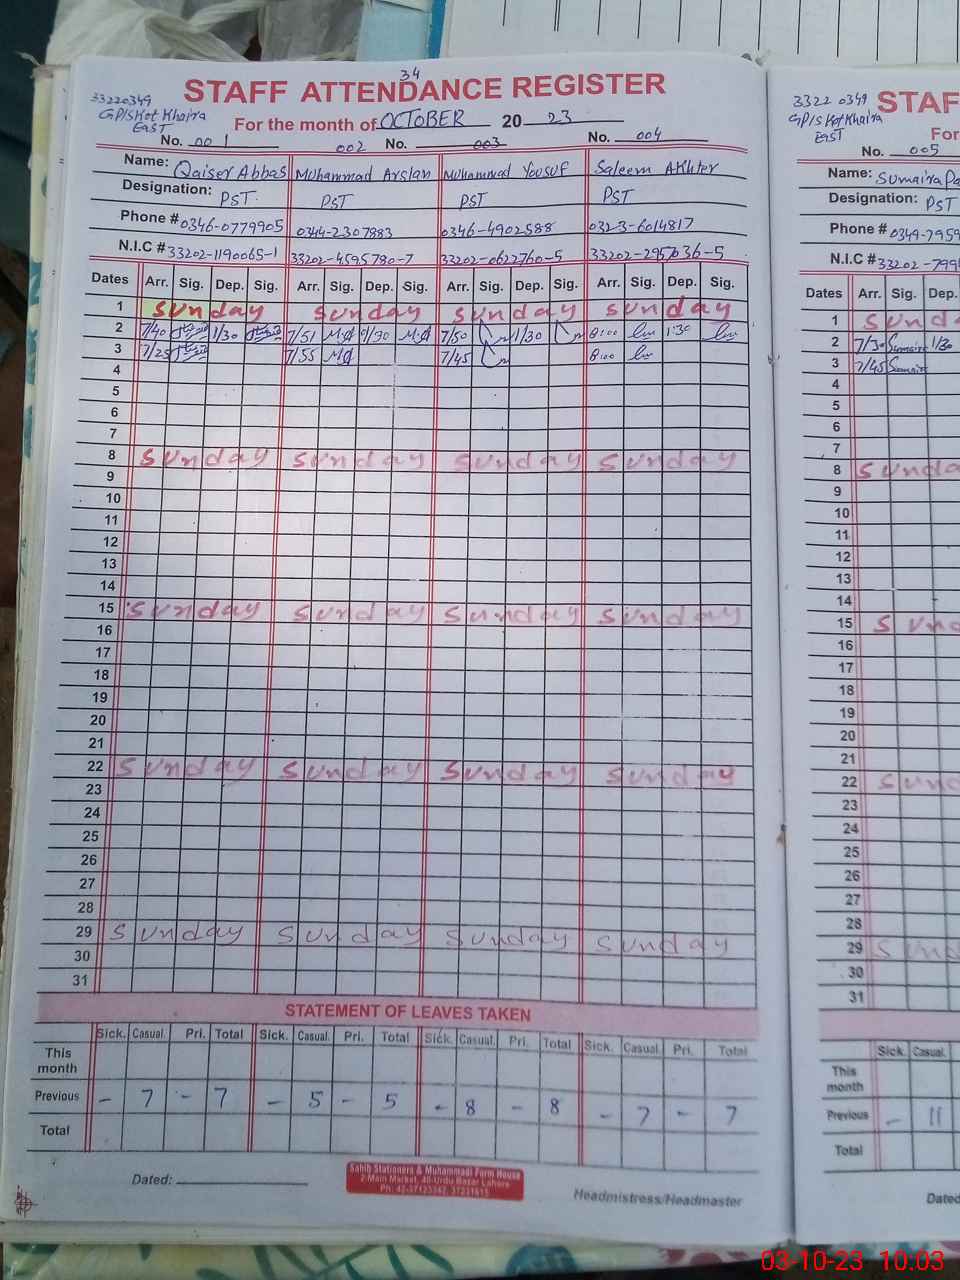 34
STAFF ATTENDANCE REGISTER
33220349
GP/S Kot Khaira
East
For the month of OCTOBER 2023
No. 001 002 No. 003 No. 004
Name: Qaiser Abbas Muhammad Arslan Muhammad Yousuf Saleem Akhter
Designation: PST. PST PST PST
Phone # 0346-0779905 0344-2307883 0346-4902588 0323-6014817
N.I.C # 33202-1190065-1 33202-4595780-7 33202-0622760-5 33202-2957036-5
Dates Arr. Sig. Dep. Sig. Arr. Sig. Dep. Sig. Arr. Sig. Dep. Sig. Arr. Sig. Dep. Sig.
1 Sunday Sunday Sunday Sunday
2 7/40 1/30 7/51 7/50 1/30 8:00 1:30
3 7/25 7/55 7/45 8:00
4
5
6
7
8 Sunday Sunday Sunday Sunday
9
10
11
12
13
14
15 Sunday Sunday Sunday Sunday
16
17
18
19
20
21
22 Sunday Sunday Sunday Sunday
23
24
25
26
27
28
29 Sunday Sunday Sunday Sunday
30
31
STATEMENT OF LEAVES TAKEN
Sick. Casual. Pri. Total Sick. Casual. Pri. Total Sick. Casual. Pri. Total Sick. Casual. Pri. Total
This month
Previous - 7 - 7 - 5 - 5 - 8 - 8 - 7 - 7
Total
Dated:
Sahib Stationers & Muhammadi Form House
2-Main Market, 40-Urdu Bazar Lahore
Headmistress/Headmaster
3322 0349
GP/S Kot Khaira
East
STAF
For
No. 005
Name: Sumaira Pa
Designation: PST
Phone # 0349-7959
N.I.C # 33202-799
Dates Arr. Sig. Dep.
1 Sunda
2 7/30 Sumaira 1/30
3 7/45 Sumaira
4
5
6
7
8 Sunda
9
10
11
12
13
14
15 Sund
16
17
18
19
20
21
22 Sund
23
24
25
26
27
28
29 Sund
30
31
Sick. Casual.
This month
Previous - 11
Total
Dated
03-10-23 10:03